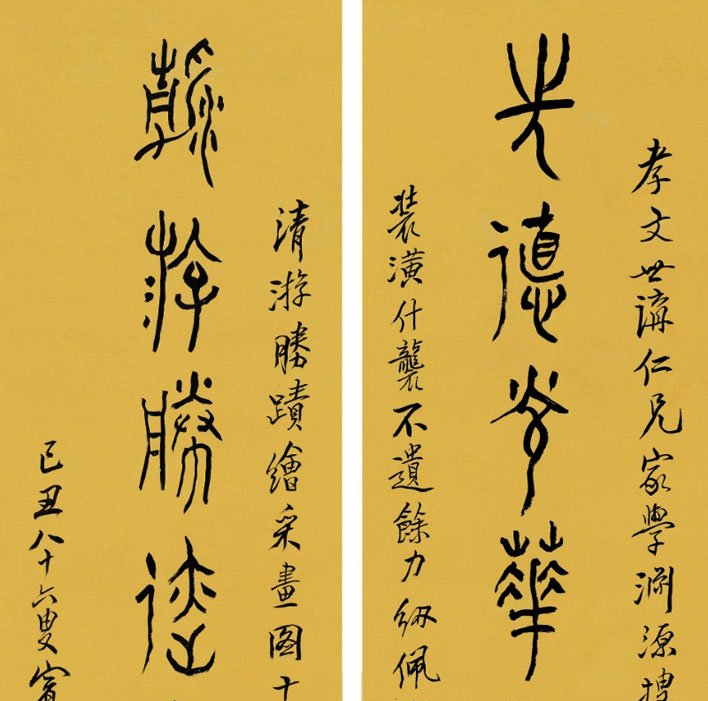 孝文世講仁兄家學淵源
先德華
裝潢什襲不遺餘力紉佩
清游勝蹟繪采畫圖十
清游勝迹
己丑八十六叟賓